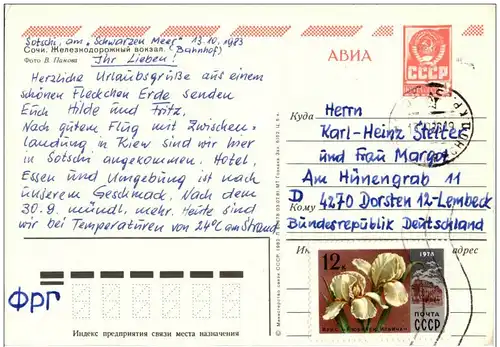 Sotschi, am „Schwarzen Meer" 13.10.1983
Сочи. Железнодорожный вокзал. (Bahnhof)
Фото В. Панова
Ihr Lieben!
Herzliche Urlaubsgrüße aus einem
schönen Fleckchen Erde senden
Euch Hilde und Fritz.
Nach gutem Flug mit Zwischen-
landung in Kiew sind wir hier
in Sotschi angekommen. Hotel,
Essen und Umgebung ist nach
unserem Geschmack. Nach dem
30.9. mündl. mehr. Heute sind
wir bei Temperaturen von 24°C am Strand
ФРГ
Индекс предприятия связи места назначения
АВИА
СССР
Куда
Herrn
Karl-Heinz Stetter
und Frau Margot
Am Hünengrab 11
Кому
D 4270 Dorsten 12-Lembeck
Bundesrepublik Deutschland
адрес
12к
1978
ПОЧТА
СССР